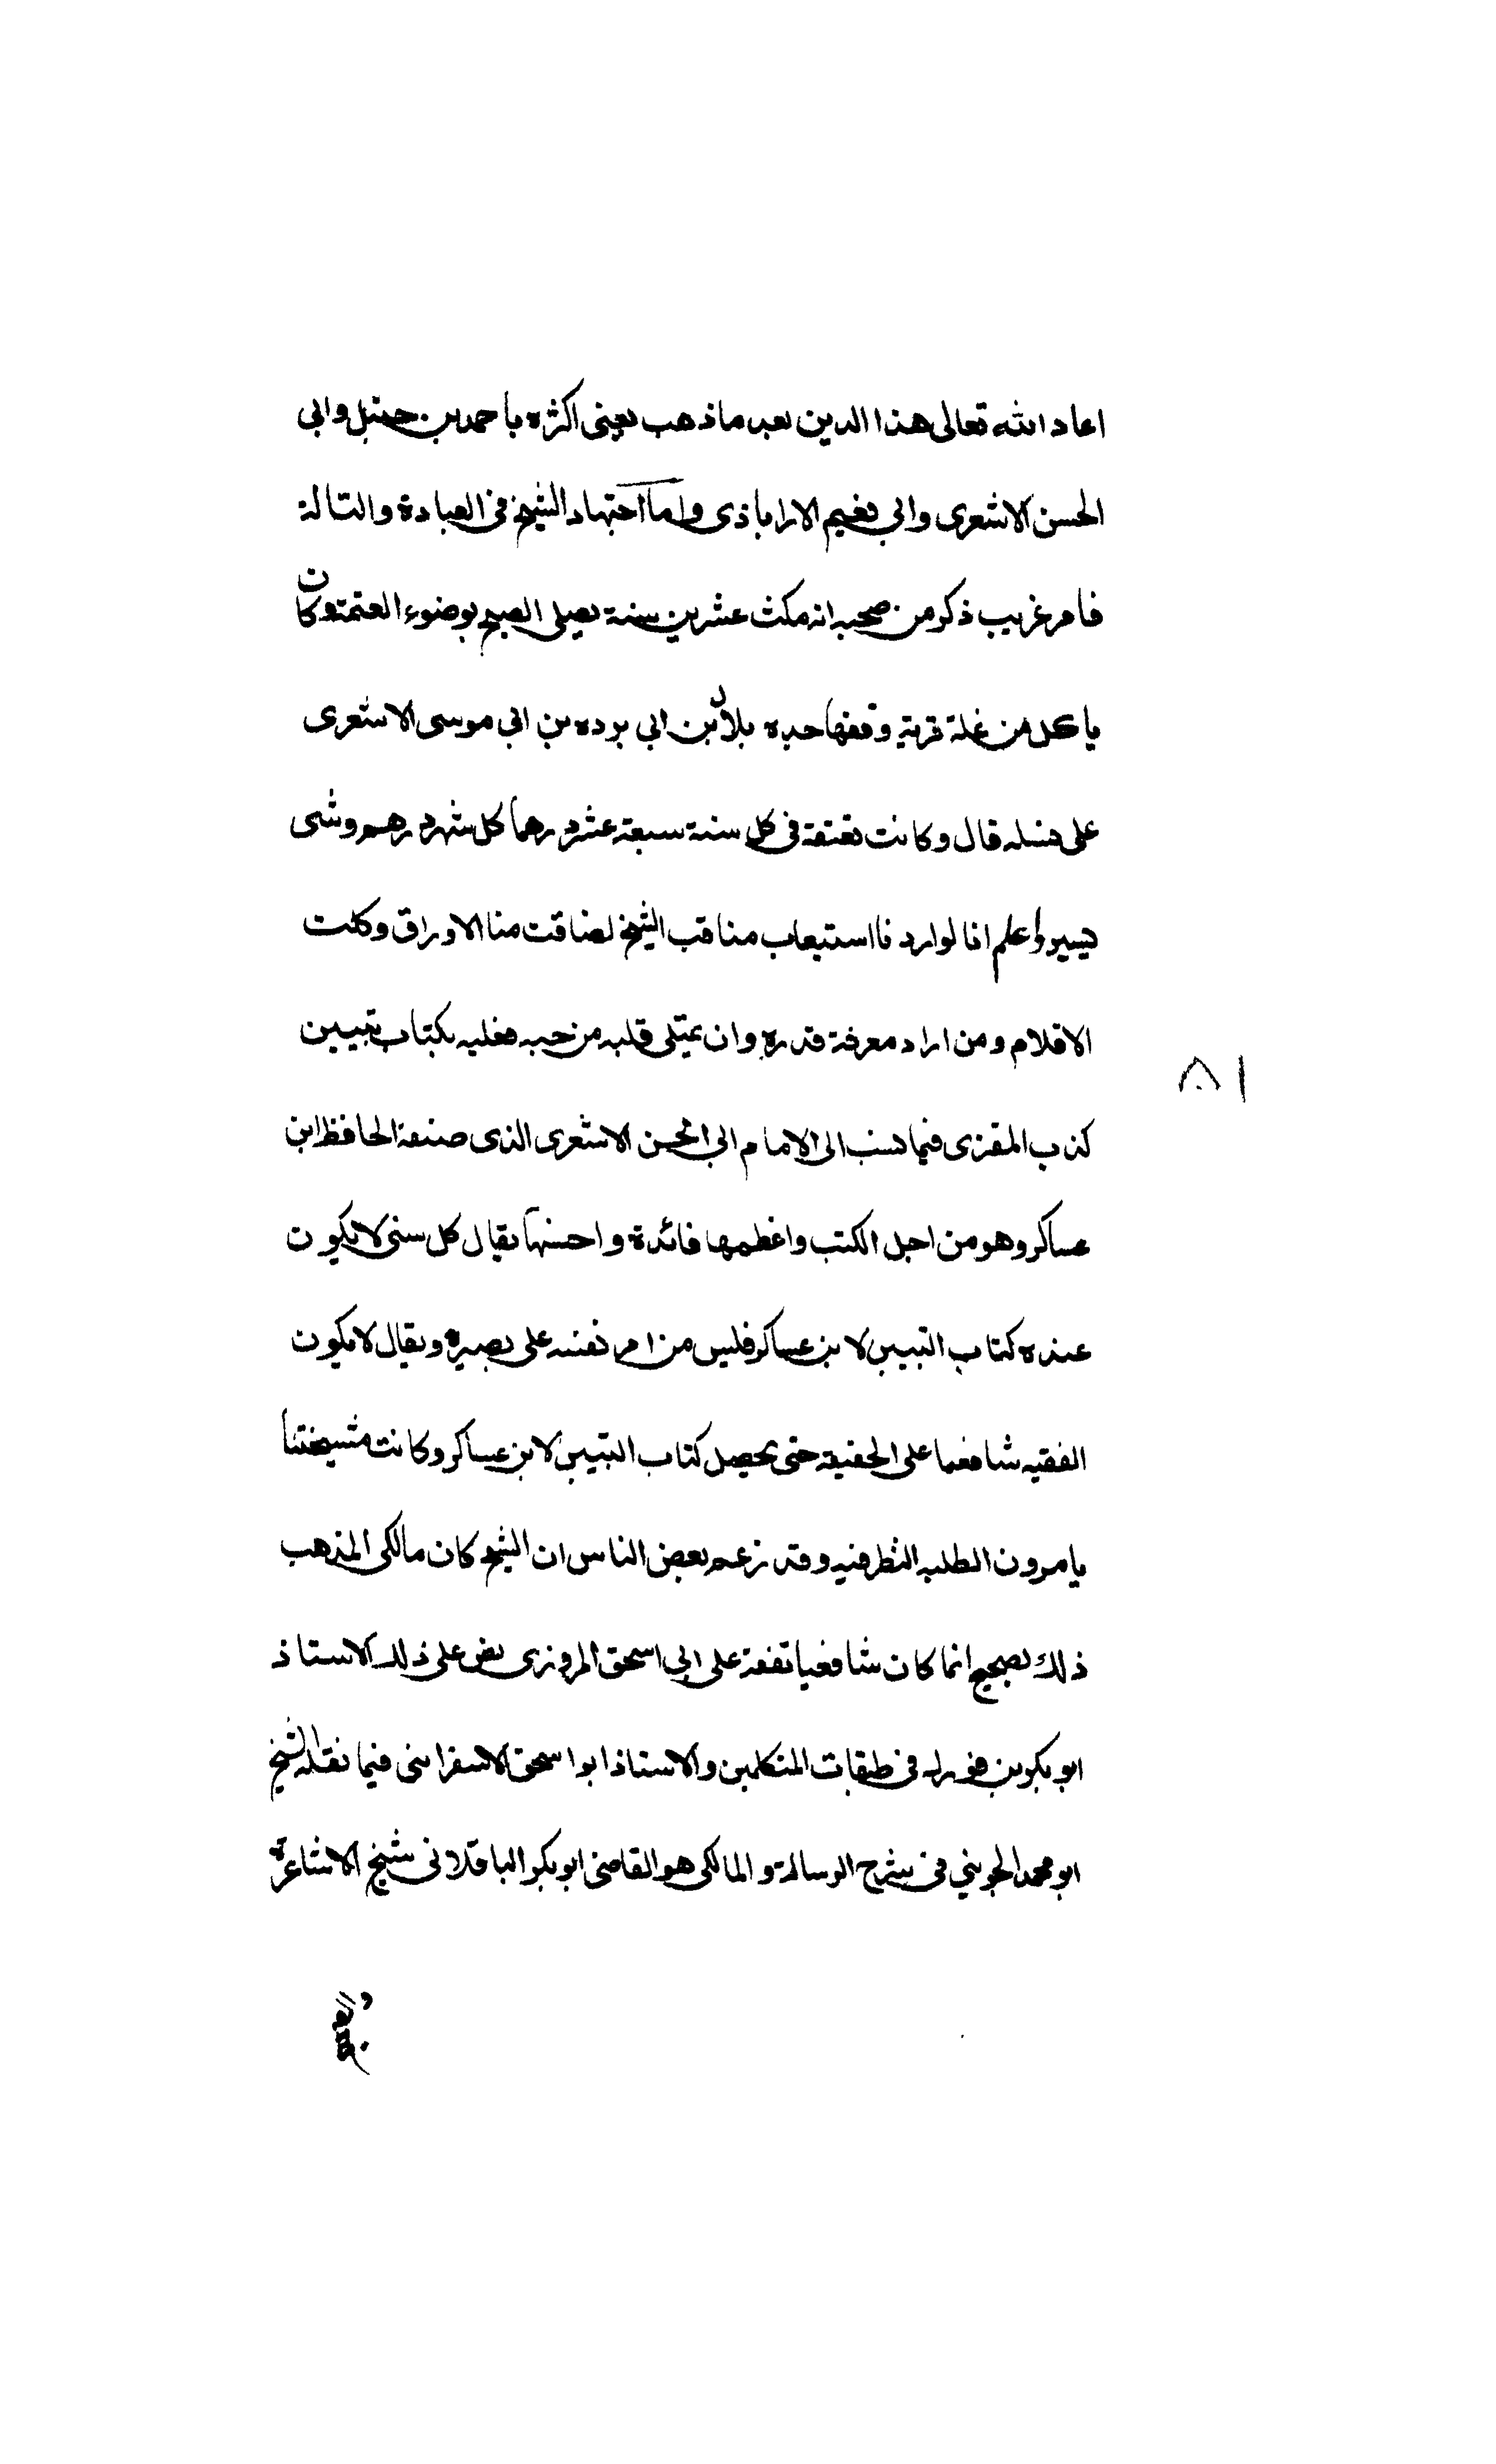 اعاد الله تعالى هذا الدين بعد ما ذهب يعنى اكثره باحمد بن حنبل وابى
الحسن الاشعرى وابى نعيم الاراباذى واما اجتهاد الشيخ فى العبادة والتاله
فامر غريب ذكر من صحبه انه مكث عشرين سنة يصلى الصبح بوضوء العتمة وكان
ياكل من غلة قرية وقفها جده بلال بن ابى برده بن ابى موسى الاشعرى
على نسله قال وكانت نفقته فى كل سنة سبعة عشر درهما كل شهر درهم وشى
يسير واعلم انا لو اردنا استيعاب مناقب الشيخ لضاقت منا الاوراق وكلت
الاقلام ومن اراد معرفة قدره وان يمتلى قلبه من حبه فعليه بكتاب تبيين
كذب المفترى فيما نسب الى الامام ابى الحسن الاشعرى الذى صنفه الحافظ ابن
عساكر وهو من اجل الكتب واعظمها فائدة واحسنها يقال كل سنى لا يكون
عنده كتاب التبيين لابن عساكر فليس من امر نفسه على بصيرة ويقال لا يكون
الفقيه شافعيا على الحقيقة حتى يحصل كتاب التبيين لابن عساكر وكانت مشيختنا
يامرون الطلبه النظر فيه وقد زعم بعض الناس ان الشيخ كان مالكى المذهب
ذلك بصحيح انما كان شافعيا تفقه على ابى اسحق المروزى نص على ذلك الاستاذ
ابو بكر بن فورك فى طبقات المتكلمين والاستاذ ابو اسحق الاسفراينى فيما نقله الشيخ
ابو محمد الجوينى فى شرح الرسالة والمالكى هو القاضى ابو بكر الباقلانى شيخ الاشاعرة
٨١